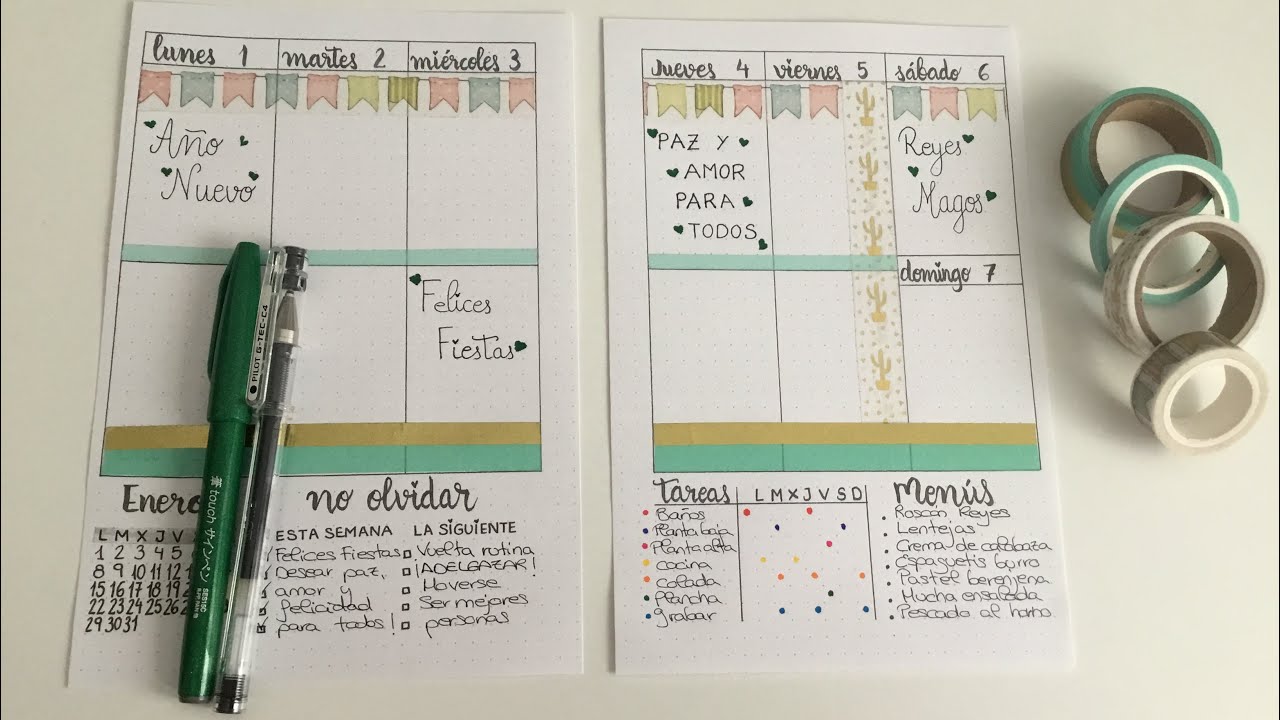 lunes 1
martes 2
miércoles 3
Año
Nuevo
Felices
Fiestas
Enero
L M X J V
1 2 3 4 5
8 9 10 11 12
15 16 17 18 19
22 23 24 25 26
29 30 31
no olvidar
ESTA SEMANA
Felices Fiestas
Desear paz,
amor y
felicidad
para todos!
LA SIGUIENTE
Vuelta rutina
¡ADELGAZAR!
Moverse
Ser mejores
personas
PILOT G-TEC-C4
touch サインペン
SES15C
Jueves 4
viernes 5
sábado 6
PAZ Y
AMOR
PARA
TODOS
Reyes
Magos
domingo 7
Tareas
L M X J V S D
Baños
Planta baja
Planta alta
cocina
colada
Plancha
grabar
Menús
Roscón Reyes
Lentejas
Crema de calabaza
Espaguetis burro
Pastel berenjena
Mucha ensalada
Pescado al horno